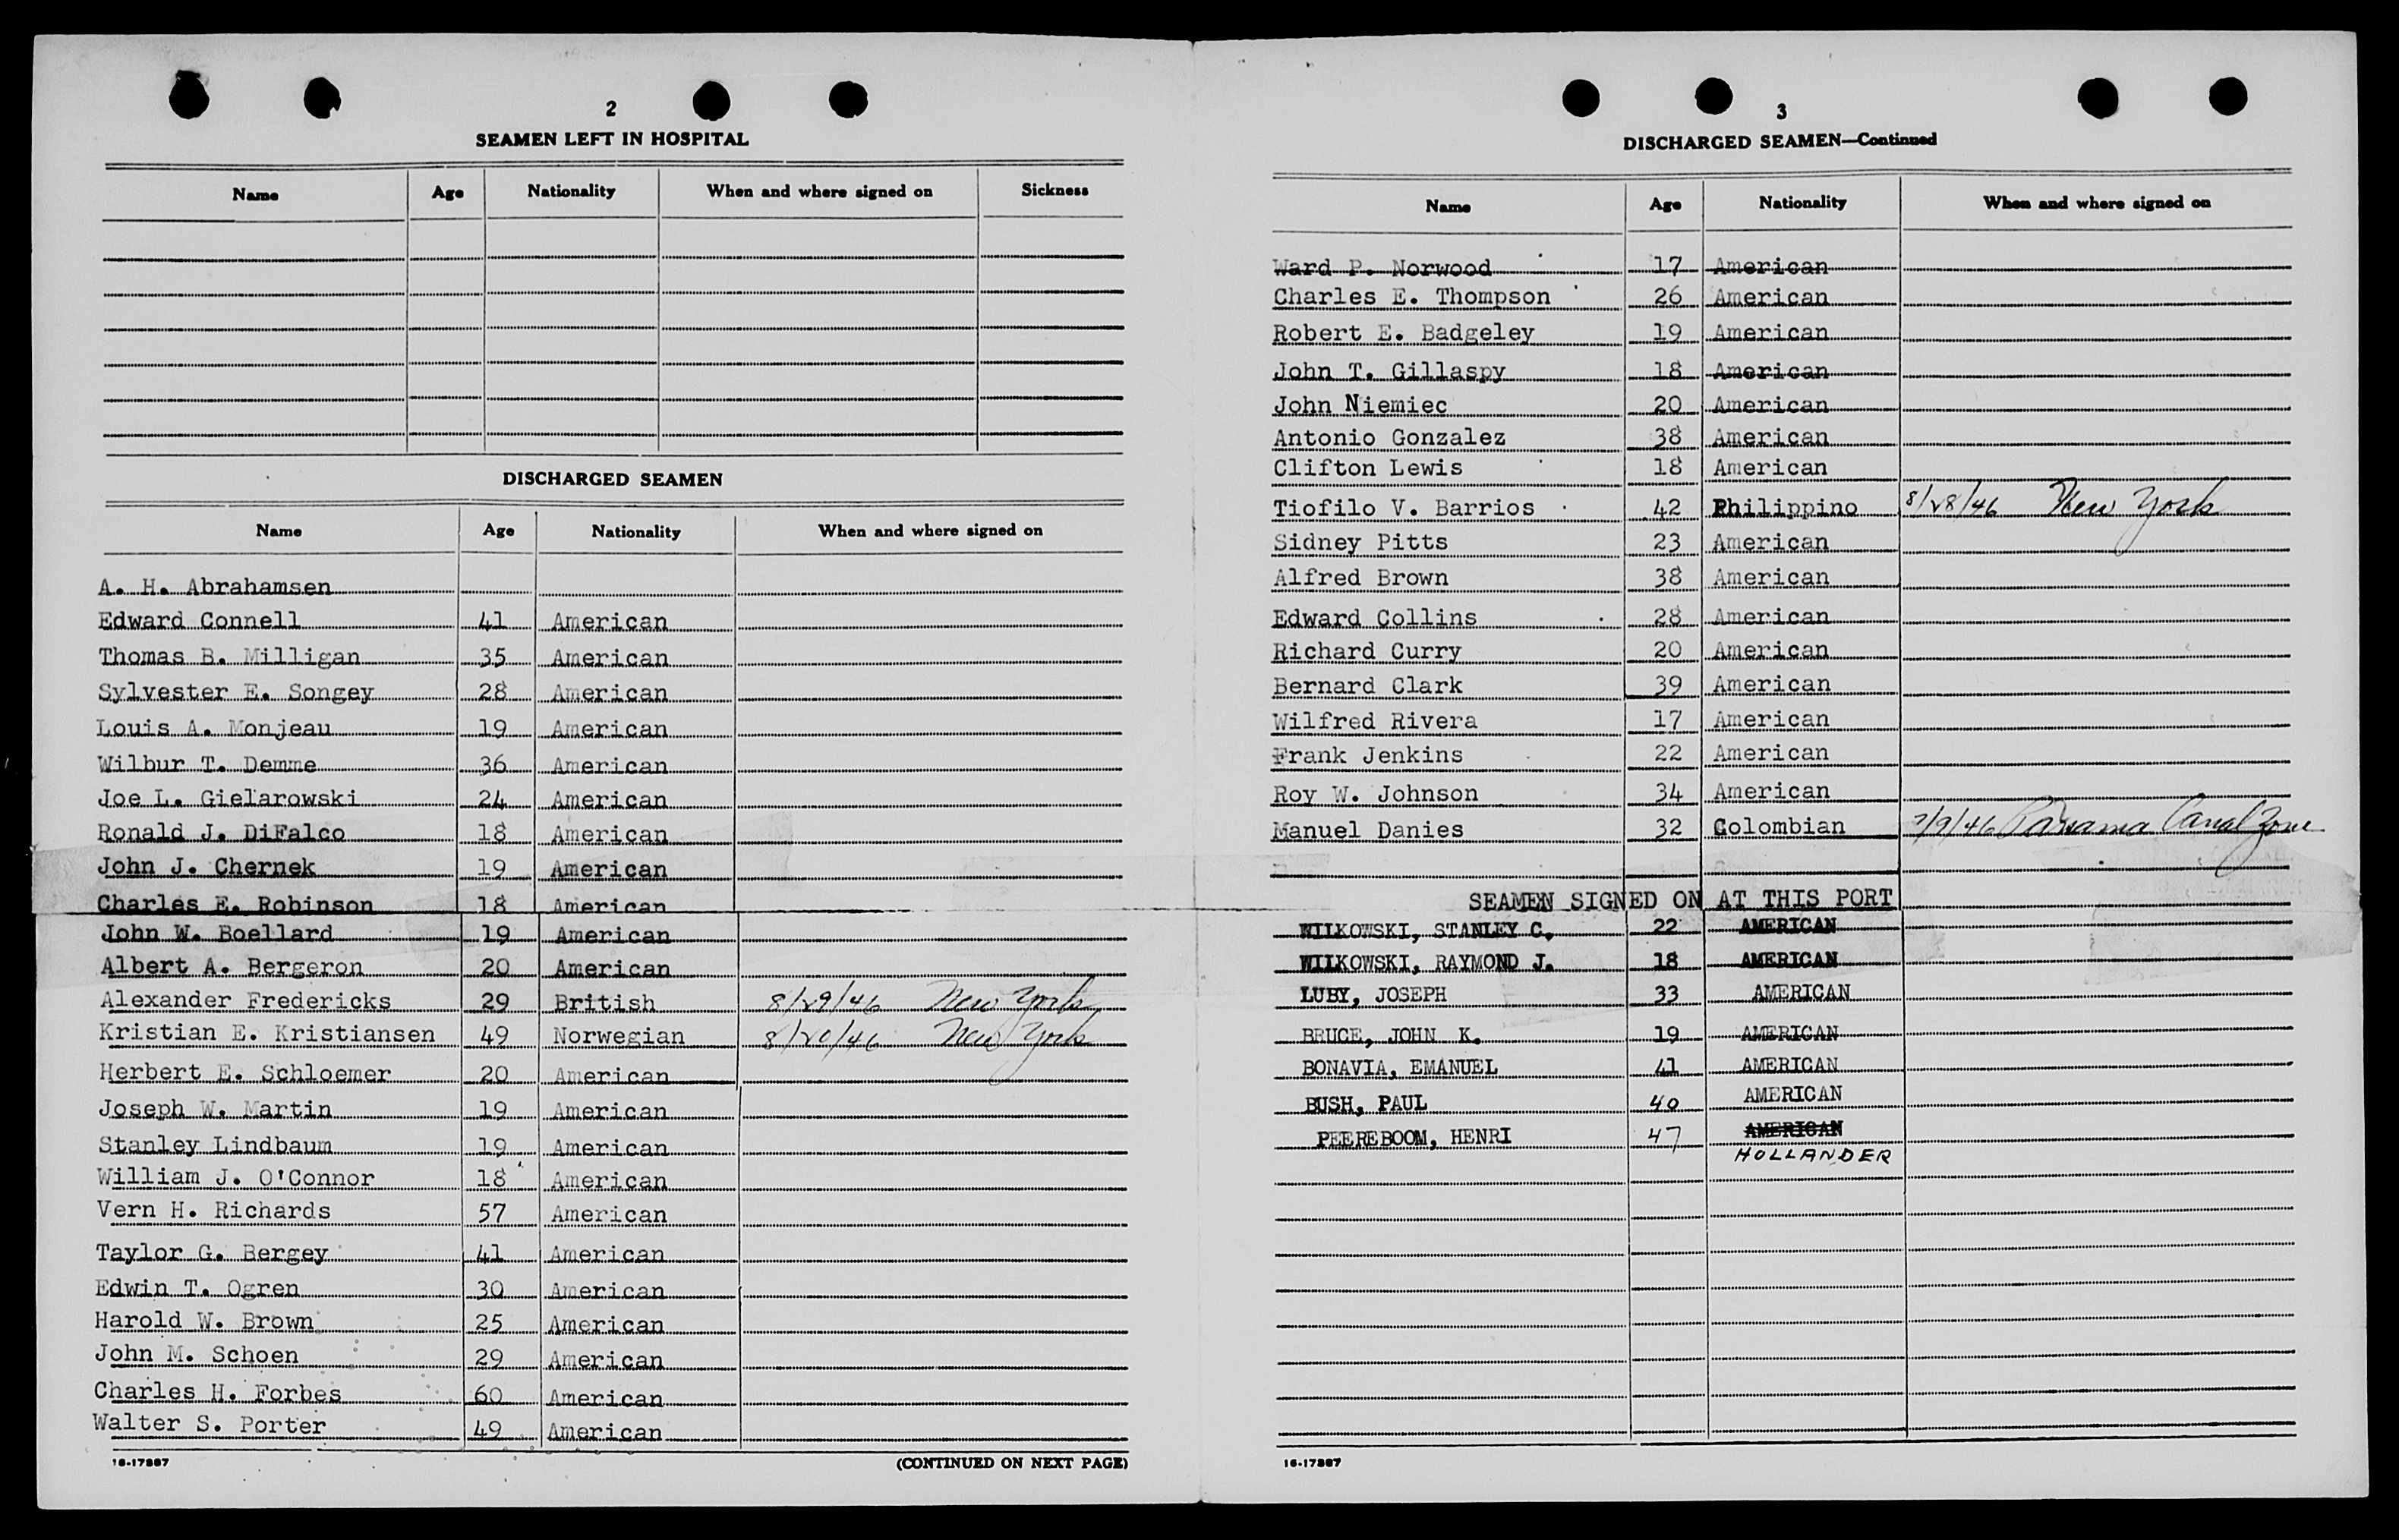 2
SEAMEN LEFT IN HOSPITAL
Name Age Nationality When and where signed on Sickness
DISCHARGED SEAMEN
Name Age Nationality When and where signed on
A. H. Abrahamsen
Edward Connell 41 American
Thomas B. Milligan 35 American
Sylvester E. Songey 28 American
Louis A. Monjeau 19 American
Wilbur T. Demme 36 American
Joe L. Gielarowski 24 American
Ronald J. DiFalco 18 American
John J. Chernek 19 American
Charles E. Robinson 18 American
John W. Boellard 19 American
Albert A. Bergeron 20 American
Alexander Fredericks 29 British 8/29/46 New York
Kristian E. Kristiansen 49 Norwegian 8/20/46 New York
Herbert E. Schloemer 20 American
Joseph W. Martin 19 American
Stanley Lindbaum 19 American
William J. O'Connor 18 American
Vern H. Richards 57 American
Taylor G. Bergey 41 American
Edwin T. Ogren 30 American
Harold W. Brown 25 American
John M. Schoen 29 American
Charles H. Forbes 60 American
Walter S. Porter 49 American
16-17887 (CONTINUED ON NEXT PAGE)
3
DISCHARGED SEAMEN—Continued
Name Age Nationality When and where signed on
Ward P. Norwood 17 American
Charles E. Thompson 26 American
Robert E. Badgeley 19 American
John T. Gillaspy 18 American
John Niemiec 20 American
Antonio Gonzalez 38 American
Clifton Lewis 18 American
Tiofilo V. Barrios 42 Philippino 8/28/46 New York
Sidney Pitts 23 American
Alfred Brown 38 American
Edward Collins 28 American
Richard Curry 20 American
Bernard Clark 39 American
Wilfred Rivera 17 American
Frank Jenkins 22 American
Roy W. Johnson 34 American
Manuel Danies 32 Colombian 7/9/46 Panama Canal Zone
SEAMEN SIGNED ON AT THIS PORT
WILKOWSKI, STANLEY C. 22 AMERICAN
WILKOWSKI, RAYMOND J. 18 AMERICAN
LUBY, JOSEPH 33 AMERICAN
BRUCE, JOHN K. 19 AMERICAN
BONAVIA, EMANUEL 41 AMERICAN
BUSH, PAUL 40 AMERICAN
PEEREBOOM, HENRI 47 AMERICAN
HOLLANDER
16-17887